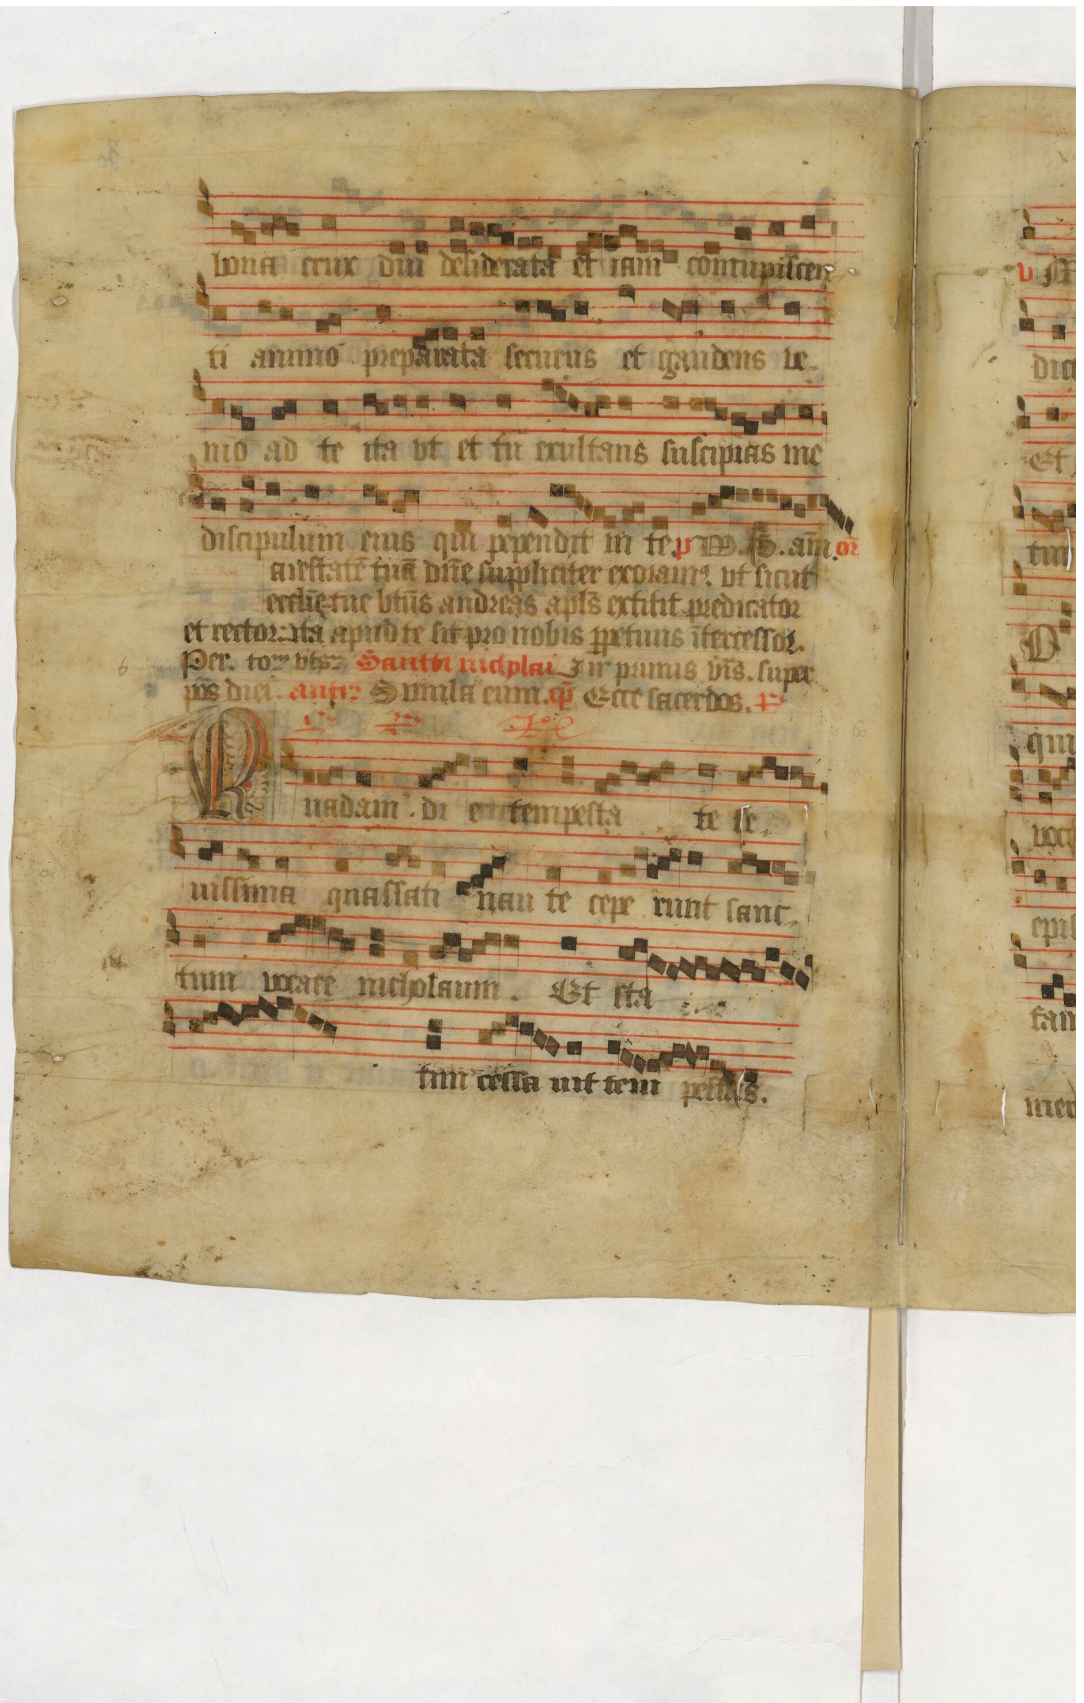 bona crux diu desiderata et iam concupiscen
ti animo preparata securus et gaudens ve
nio ad te ita ut et tu exultans suscipias me
discipulum eius qui pependit in te. p̄ M. B. am̄. or̄
aiestatē tuā dn̄e suppliciter exoram᷒. ut sicut
eccl̄ie tue bt̄us andreas apl̄s extitit predicator
et rector. ita apud te sit pro nobis ꝑpetuus ītercessor.
Per. Sancti nicholai In primis vis̄. super
pōs diei. Simila eum. Ecce sacerdos.
uadam di e tempesta te se
vissima quassati nau te cepe runt sanc
tum vocare nicholaum. Et sta
tim cessa vit tem pestas.
v
dic
Et
tun
O
qui
epi